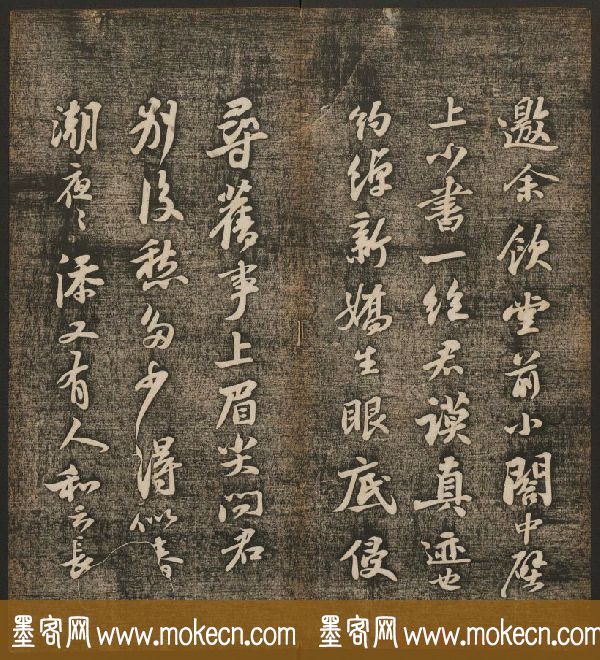 邀余飲堂前小閣中壁
上小書一絶君謨真迹也
約綽新嬌生眼底侵
尋舊事上眉尖問君
別後愁多少得似春
潮夜〻添又有人和云長
墨客网 www.mokecn.com 墨客网 www.mokecn.com